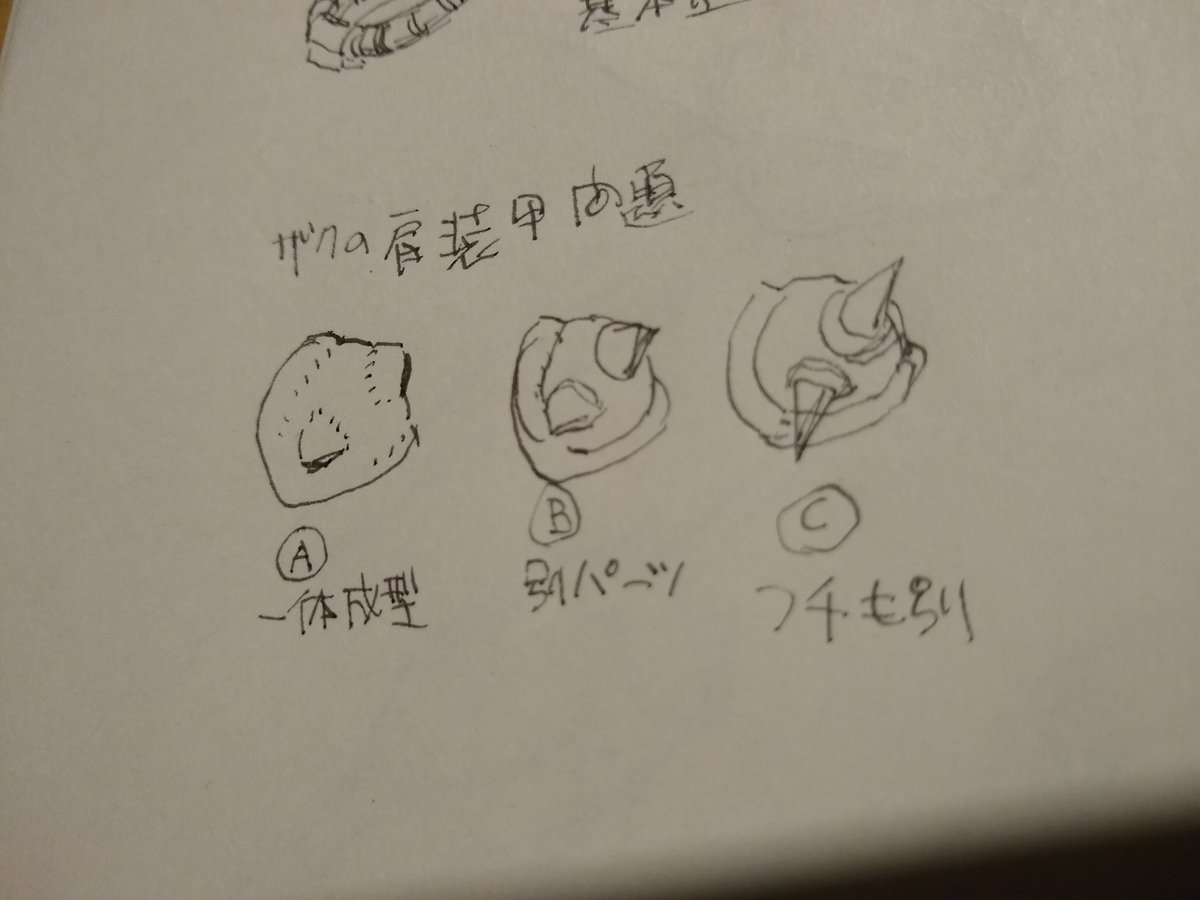 基本
ザクの肩装甲問題
A
一体成型
B
別パーツ
C
フチも別